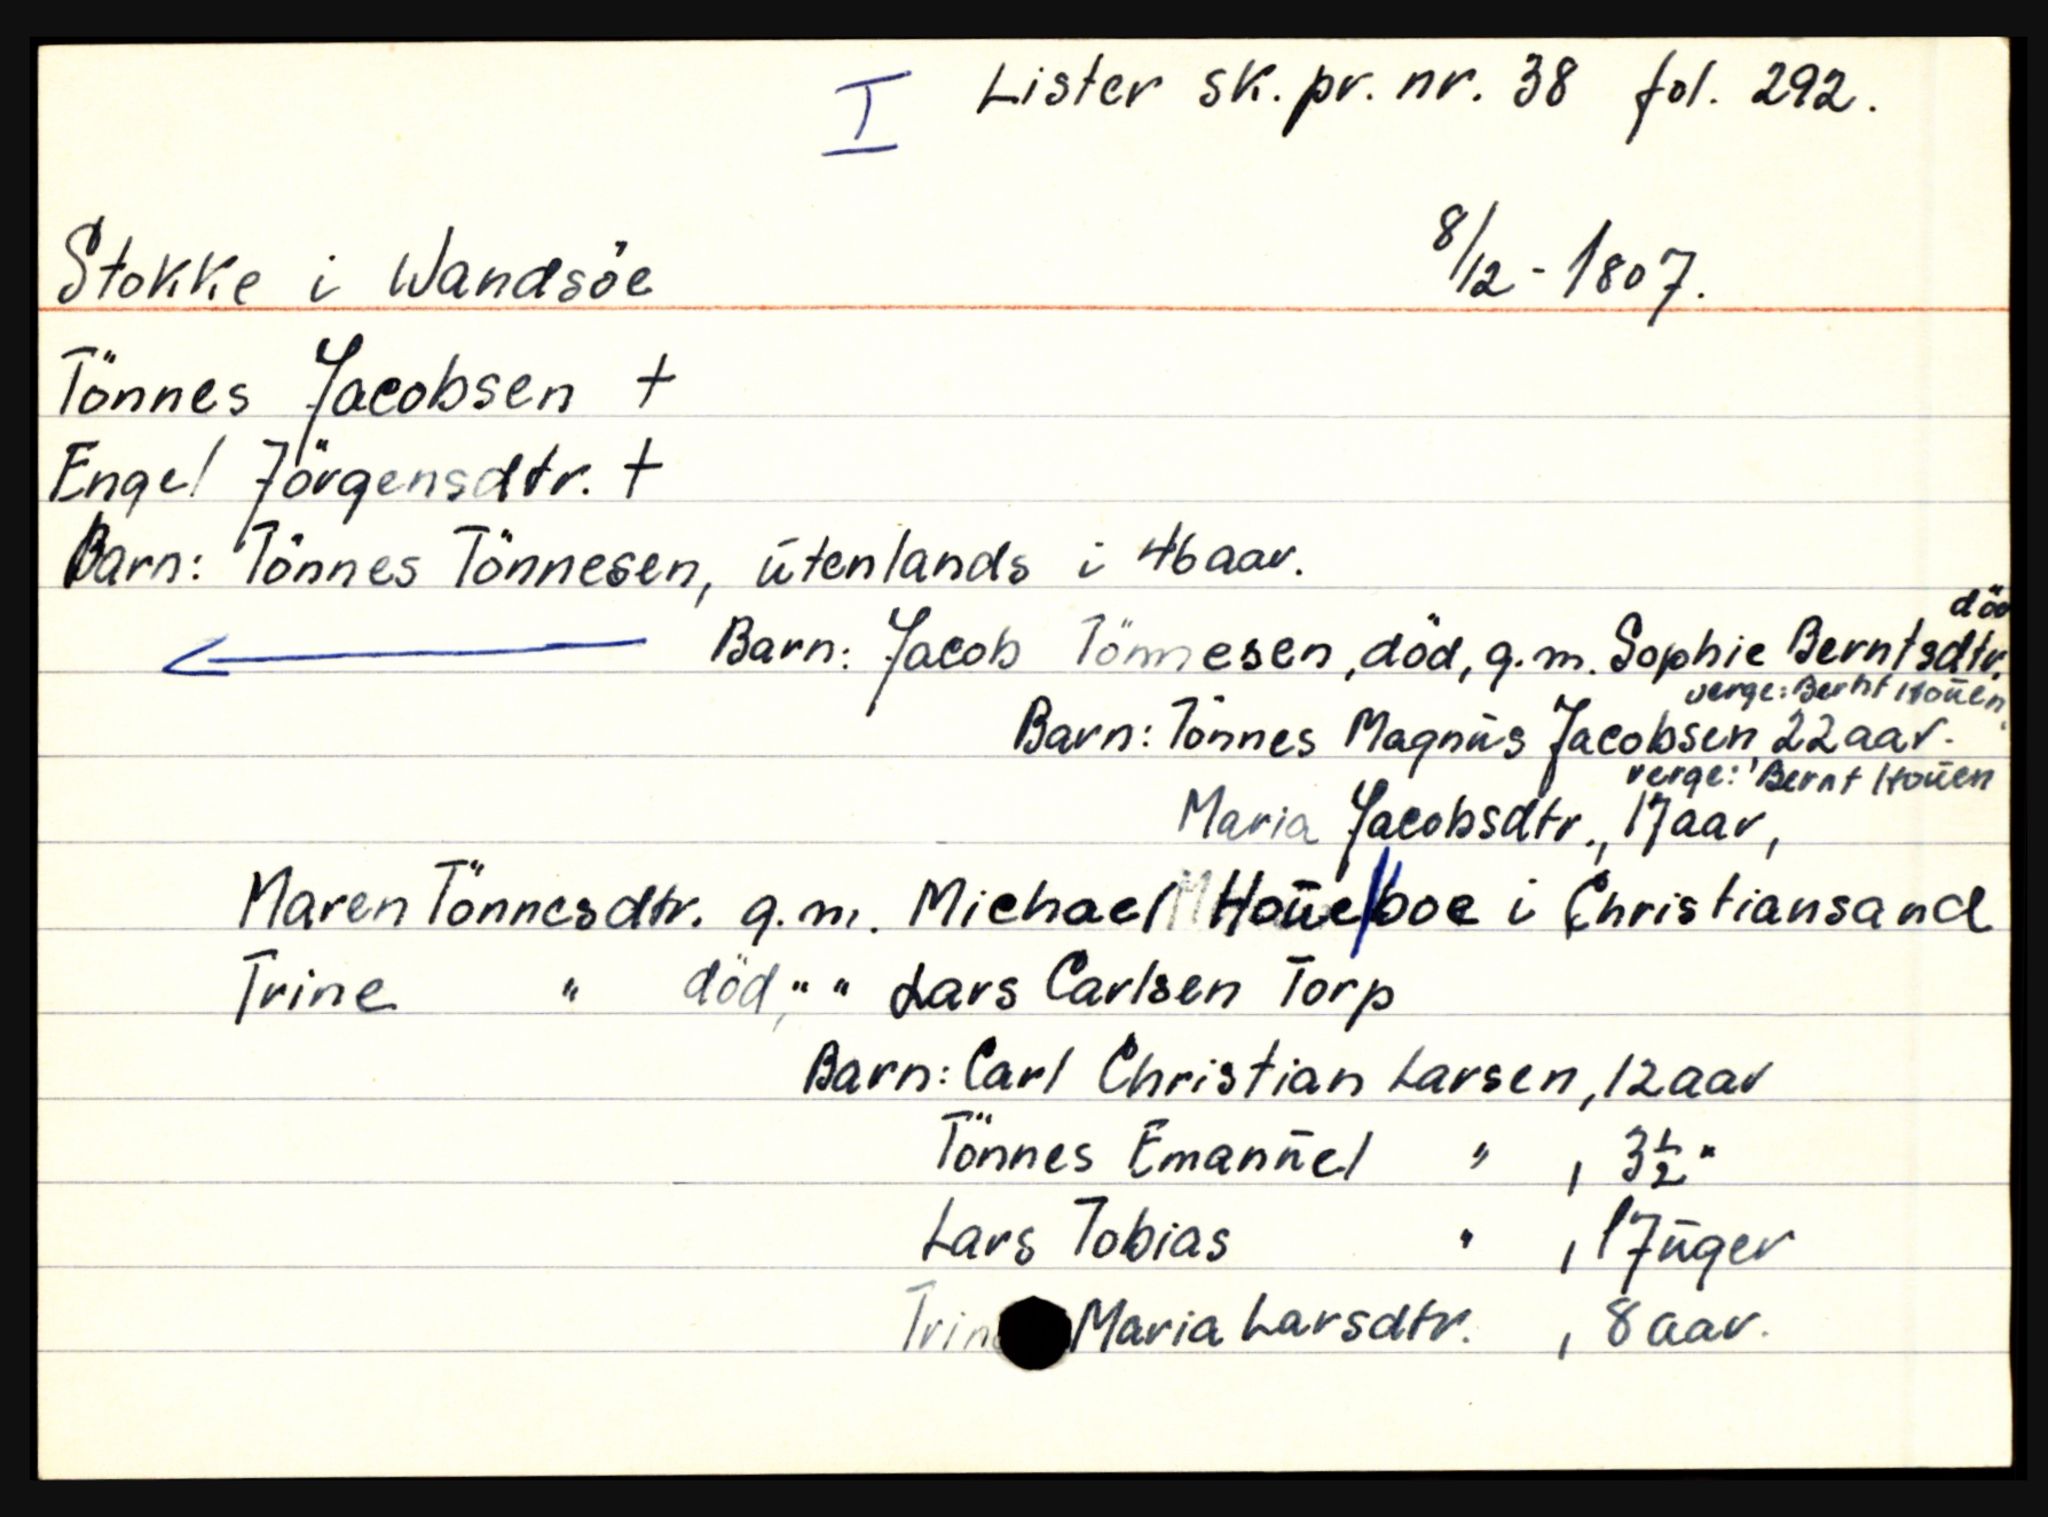 I Lister sk. pr. nr. 38 fol. 292.
Stokke i Wandsöe 8/12 - 1807.
Tönnes Jacobsen +
Engel Jörgensdtr. +
Barn: Tönnes Tönnesen, ūtenlands i 46 aar.
död
Barn: Jacob Tönnesen, död, g.m. Sophie Berntsdtr.
verge: Bernt Hoūen.
Barn: Tönnes Magnūs Jacobsen 22 aar.
verge: Bernt Hoūen
Maria Jacobsdtr., 17 aar,
Maren Tönnesdtr. g.m. Michael Hoūe/boe i Christiansand
Trine " död, " " Lars Carlsen Torp
Barn: Carl Christian Larsen, 12 aar
Tönnes Emanūel " , 3½ "
Lars Tobias " , 17 ūger
Trine Maria Larsdtr. , 8 aar.